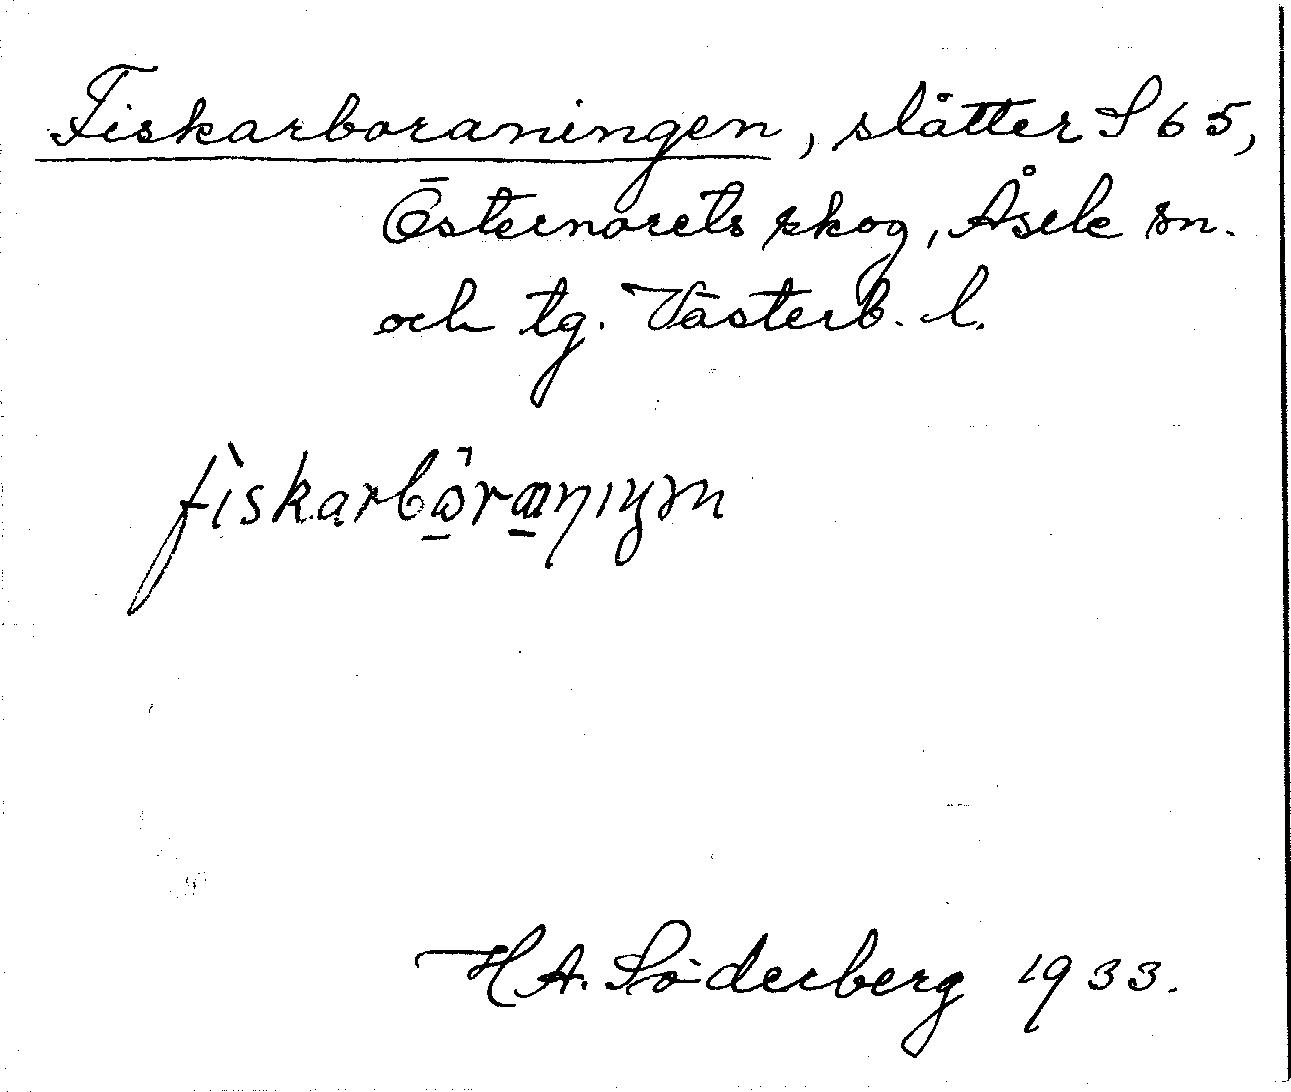 Fiskarboraningen, slåtter S 65,
Östernorets skog, Åsele sn.
och tg. Västerb. l.
H A. Söderberg 1933.